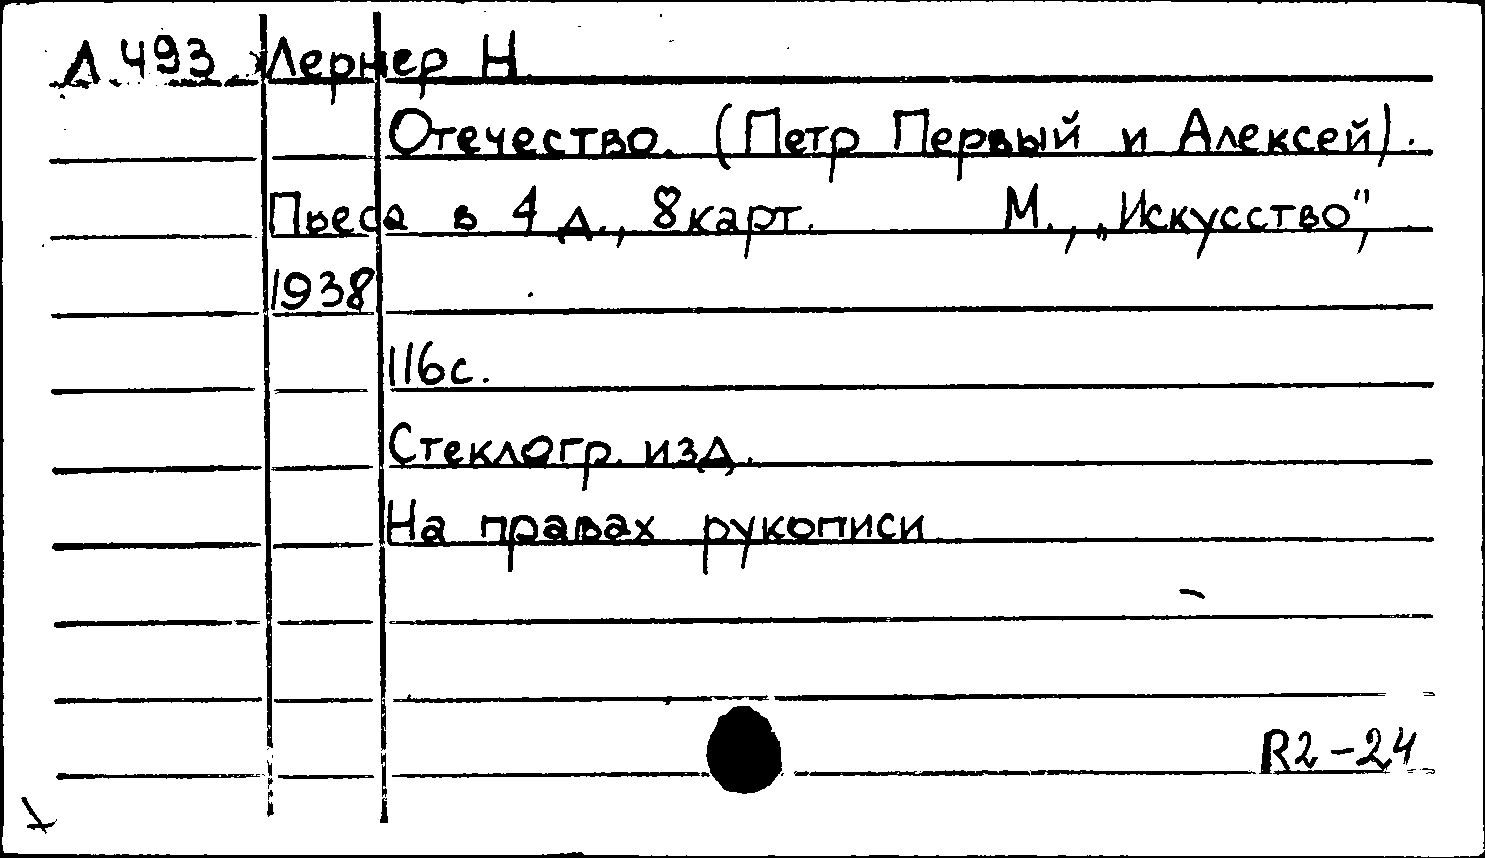 Л 493 Лернер Н
Отечество. (Петр Первый и Алексей).
Пьеса в 4 д., 8 карт. М., „Искусство",
1938
116с.
Стеклогр. изд.
На правах рукописи
R2-24